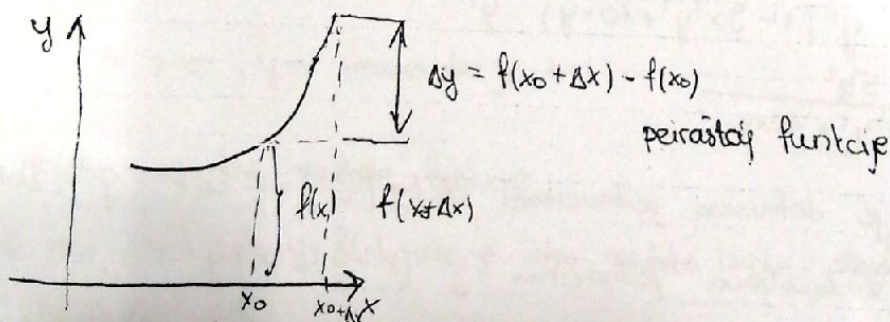 y
Δy = f(x₀ + Δx) - f(x₀)
peiraštaj funkcije
f(x) f(x+Δx)
x₀ x₀+Δx X